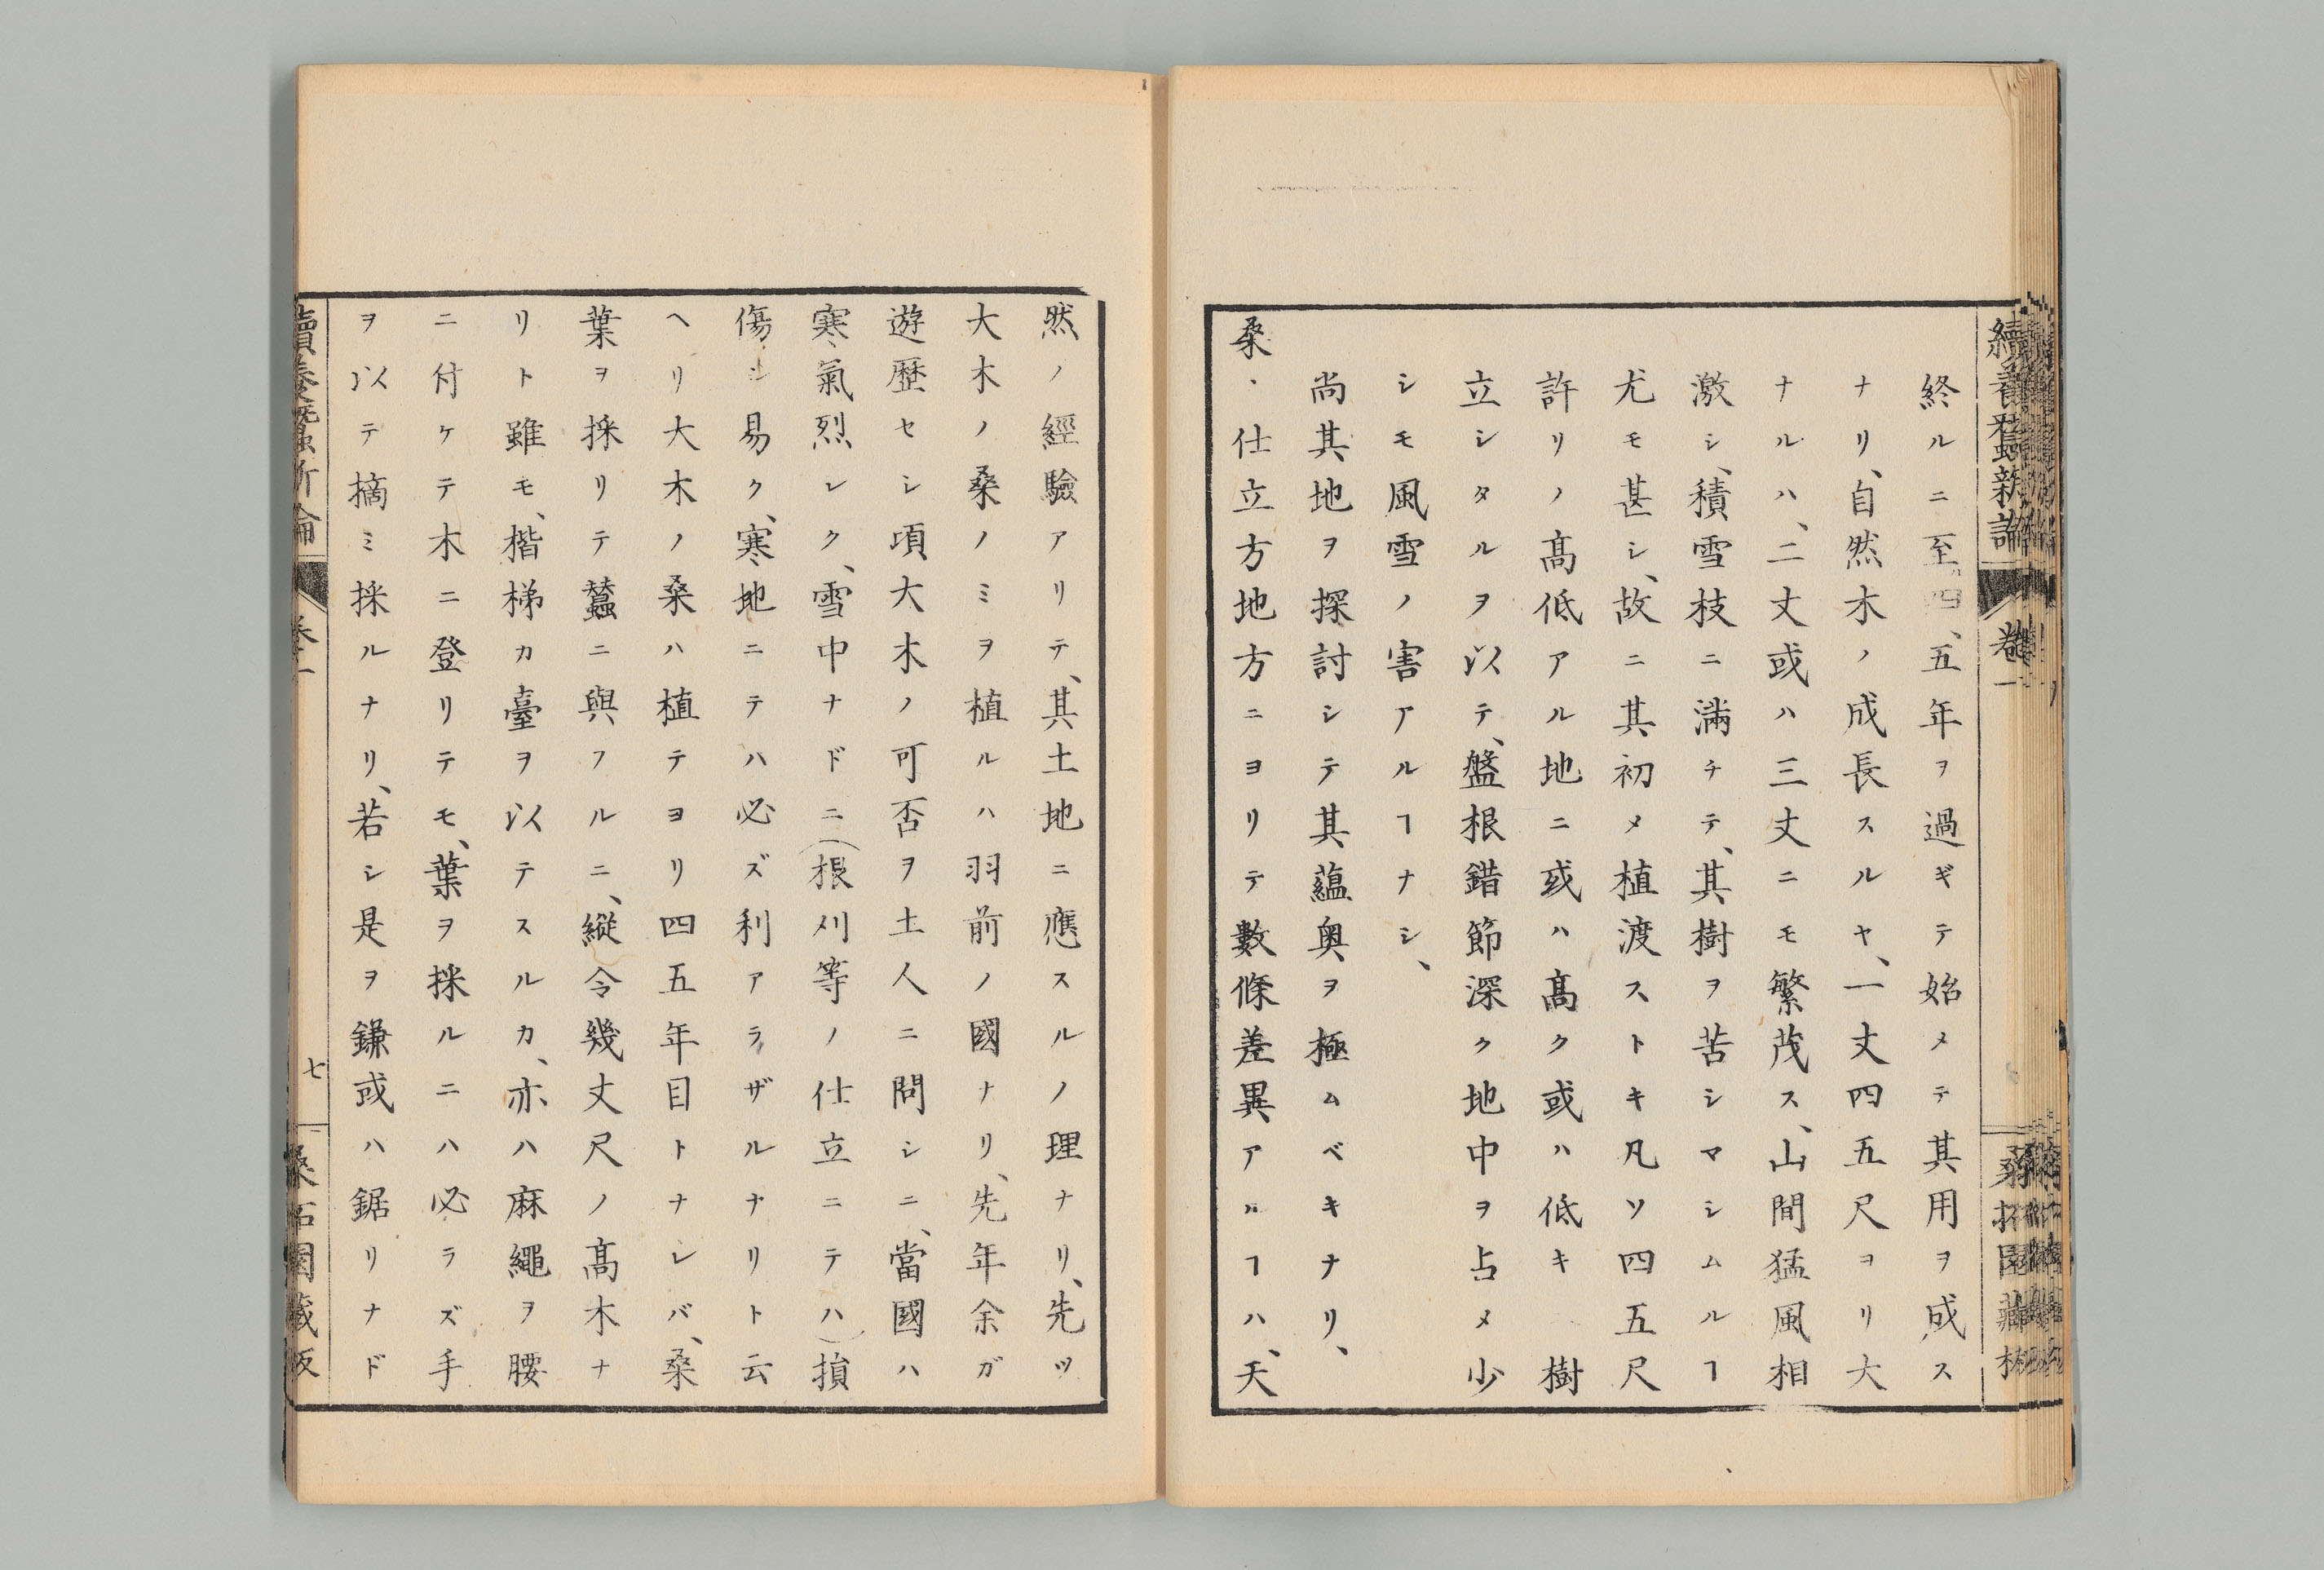 續養蠶新論
卷一
桑柘園藏板
終ルニ至四、五年ヲ過ギテ始メテ其用ヲ成ス
ナリ、自然木ノ成長スルヤ、一丈四五尺ヨリ大
ナルハ、二丈或ハ三丈ニモ繁茂ス、山間猛風相
激シ、積雪枝ニ満チテ、其樹ヲ苦シマシムルヿ
尤モ甚シ、故ニ其初メ植渡ストキ凡ソ四五尺
許リノ髙低アル地ニ或ハ髙ク或ハ低キ樹
立シタルヲ以テ、盤根錯節深ク地中ヲ占メ少
シモ風雪ノ害アルヿナシ、
尚其地ヲ探討シテ其蘊奥ヲ極ムベキナリ、
桑・仕立方地方ニヨリテ數條差異アルヿハ、天
然ノ經驗アリテ、其土地ニ應スルノ理ナリ、先ツ
大木ノ桑ノミヲ植ルハ羽前ノ國ナリ、先年余ガ
遊歴セシ項大木ノ可否ヲ土人ニ問シニ、當國ハ
寒氣烈シク、雪中ナドニ(根刈等ノ仕立ニテハ)損
傷シ易ク、寒地ニテハ必ズ利アラザルナリト云
ヘリ大木ノ桑ハ植テヨリ四五年目トナレバ、桑
葉ヲ採リテ蠶ニ與フルニ、縦令幾丈尺ノ髙木ナ
リト雖モ、楷梯カ臺ヲ以テスルカ、亦ハ麻繩ヲ腰
ニ付ケテ木ニ登リテモ、葉ヲ採ルニハ必ラズ手
ヲ以テ摘ミ採ルナリ、若シ是ヲ鎌或ハ鋸リナド
續養蠶新論
卷一
七
桑柘園藏板